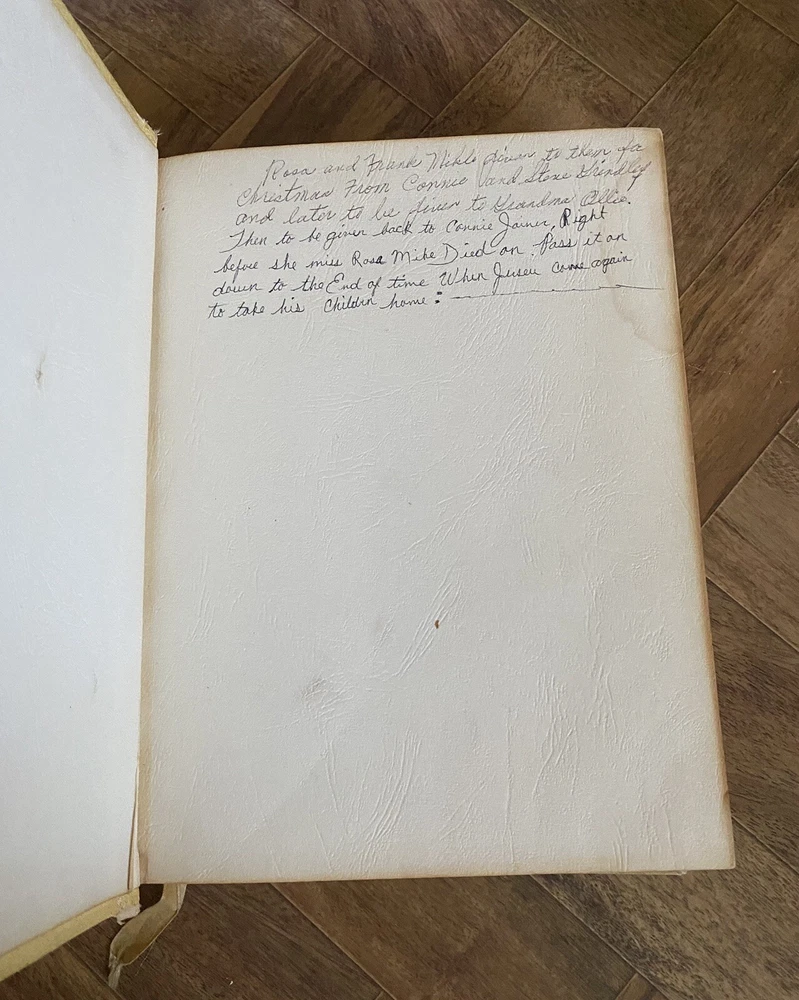 Rosa and Frank Mikls given to them fo
Christmas From Connie and Steve Grindley
and later to be given to Grandma Ollie.
Then to be given back to Connie Joiner, Right
before she miss Rosa Mike Died on. Pass it on
down to the End of time When Juseu come again
to take his Childrn home: